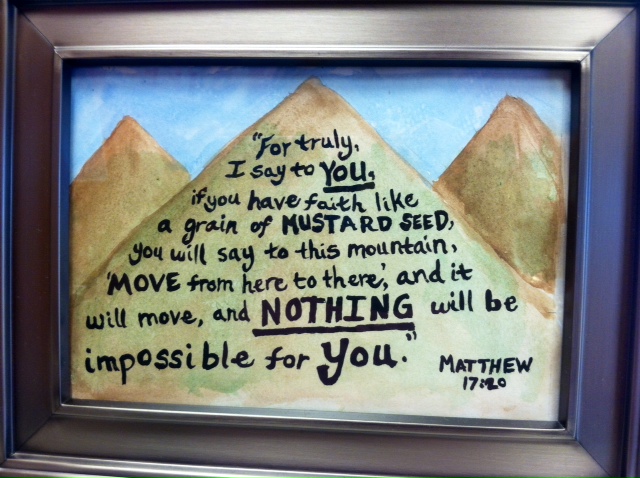 "For truly,
I say to YOU,
if you have faith like
a grain of MUSTARD SEED,
you will say to this mountain,
'MOVE from here to there,' and it
will move, and NOTHING will be
impossible for YOU."
MATTHEW
17:20